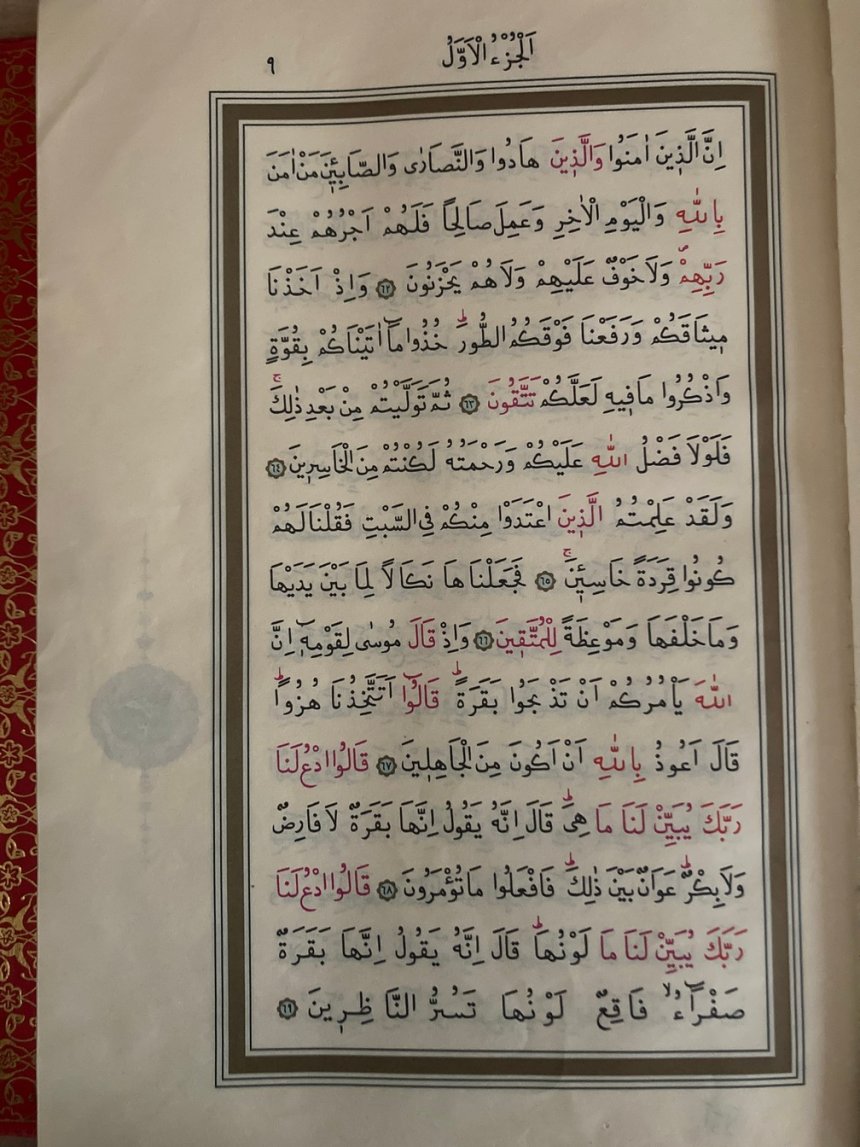 اَلْجُزْءُ الْاَوَّلُ
٩
اِنَّ الَّذٖينَ اٰمَنُوا وَالَّذٖينَ هَادُوا وَالنَّصَارٰى وَالصَّابِـٖٔينَ مَنْ اٰمَنَ
بِاللّٰهِ وَالْيَوْمِ الْاٰخِرِ وَعَمِلَ صَالِحًا فَلَهُمْ اَجْرُهُمْ عِنْدَ
رَبِّهِمْۙ وَلَا خَوْفٌ عَلَيْهِمْ وَلَا هُمْ يَحْزَنُونَ ﴿٦٢﴾ وَاِذْ اَخَذْنَا
مٖيثَاقَكُمْ وَرَفَعْنَا فَوْقَكُمُ الطُّورَؕ خُذُوا مَٓا اٰتَيْنَاكُمْ بِقُوَّةٍ
وَاذْكُرُوا مَا فٖيهِ لَعَلَّكُمْ تَتَّقُونَ ﴿٦٣﴾ ثُمَّ تَوَلَّيْتُمْ مِنْ بَعْدِ ذٰلِكَۚ
فَلَوْلَا فَضْلُ اللّٰهِ عَلَيْكُمْ وَرَحْمَتُهُ لَكُنْتُمْ مِنَ الْخَاسِرٖينَ ﴿٦٤﴾
وَلَقَدْ عَلِمْتُمُ الَّذٖينَ اعْتَدَوْا مِنْكُمْ فِى السَّبْتِ فَقُلْنَا لَهُمْ
كُونُوا قِرَدَةً خَاسِـٖٔينَۚ ﴿٦٥﴾ فَجَعَلْنَاهَا نَكَالًا لِمَا بَيْنَ يَدَيْهَا
وَمَا خَلْفَهَا وَمَوْعِظَةً لِلْمُتَّقٖينَ ﴿٦٦﴾ وَاِذْ قَالَ مُوسٰى لِقَوْمِهٖٓ اِنَّ
اللّٰهَ يَأْمُرُكُمْ اَنْ تَذْبَحُوا بَقَرَةًؕ قَالُٓوا اَتَتَّخِذُنَا هُزُوًاؕ
قَالَ اَعُوذُ بِاللّٰهِ اَنْ اَكُونَ مِنَ الْجَاهِلٖينَ ﴿٦٧﴾ قَالُوا ادْعُ لَنَا
رَبَّكَ يُبَيِّنْ لَنَا مَا هِىَؕ قَالَ اِنَّهُ يَقُولُ اِنَّهَا بَقَرَةٌ لَا فَارِضٌ
وَلَا بِكْرٌؕ عَوَانٌ بَيْنَ ذٰلِكَؕ فَافْعَلُوا مَا تُؤْمَرُونَ ﴿٦٨﴾ قَالُوا ادْعُ لَنَا
رَبَّكَ يُبَيِّنْ لَنَا مَا لَوْنُهَاؕ قَالَ اِنَّهُ يَقُولُ اِنَّهَا بَقَرَةٌ
صَفْرَٓاءُۙ فَاقِعٌ لَوْنُهَا تَسُرُّ النَّاظِرٖينَ ﴿٦٩﴾